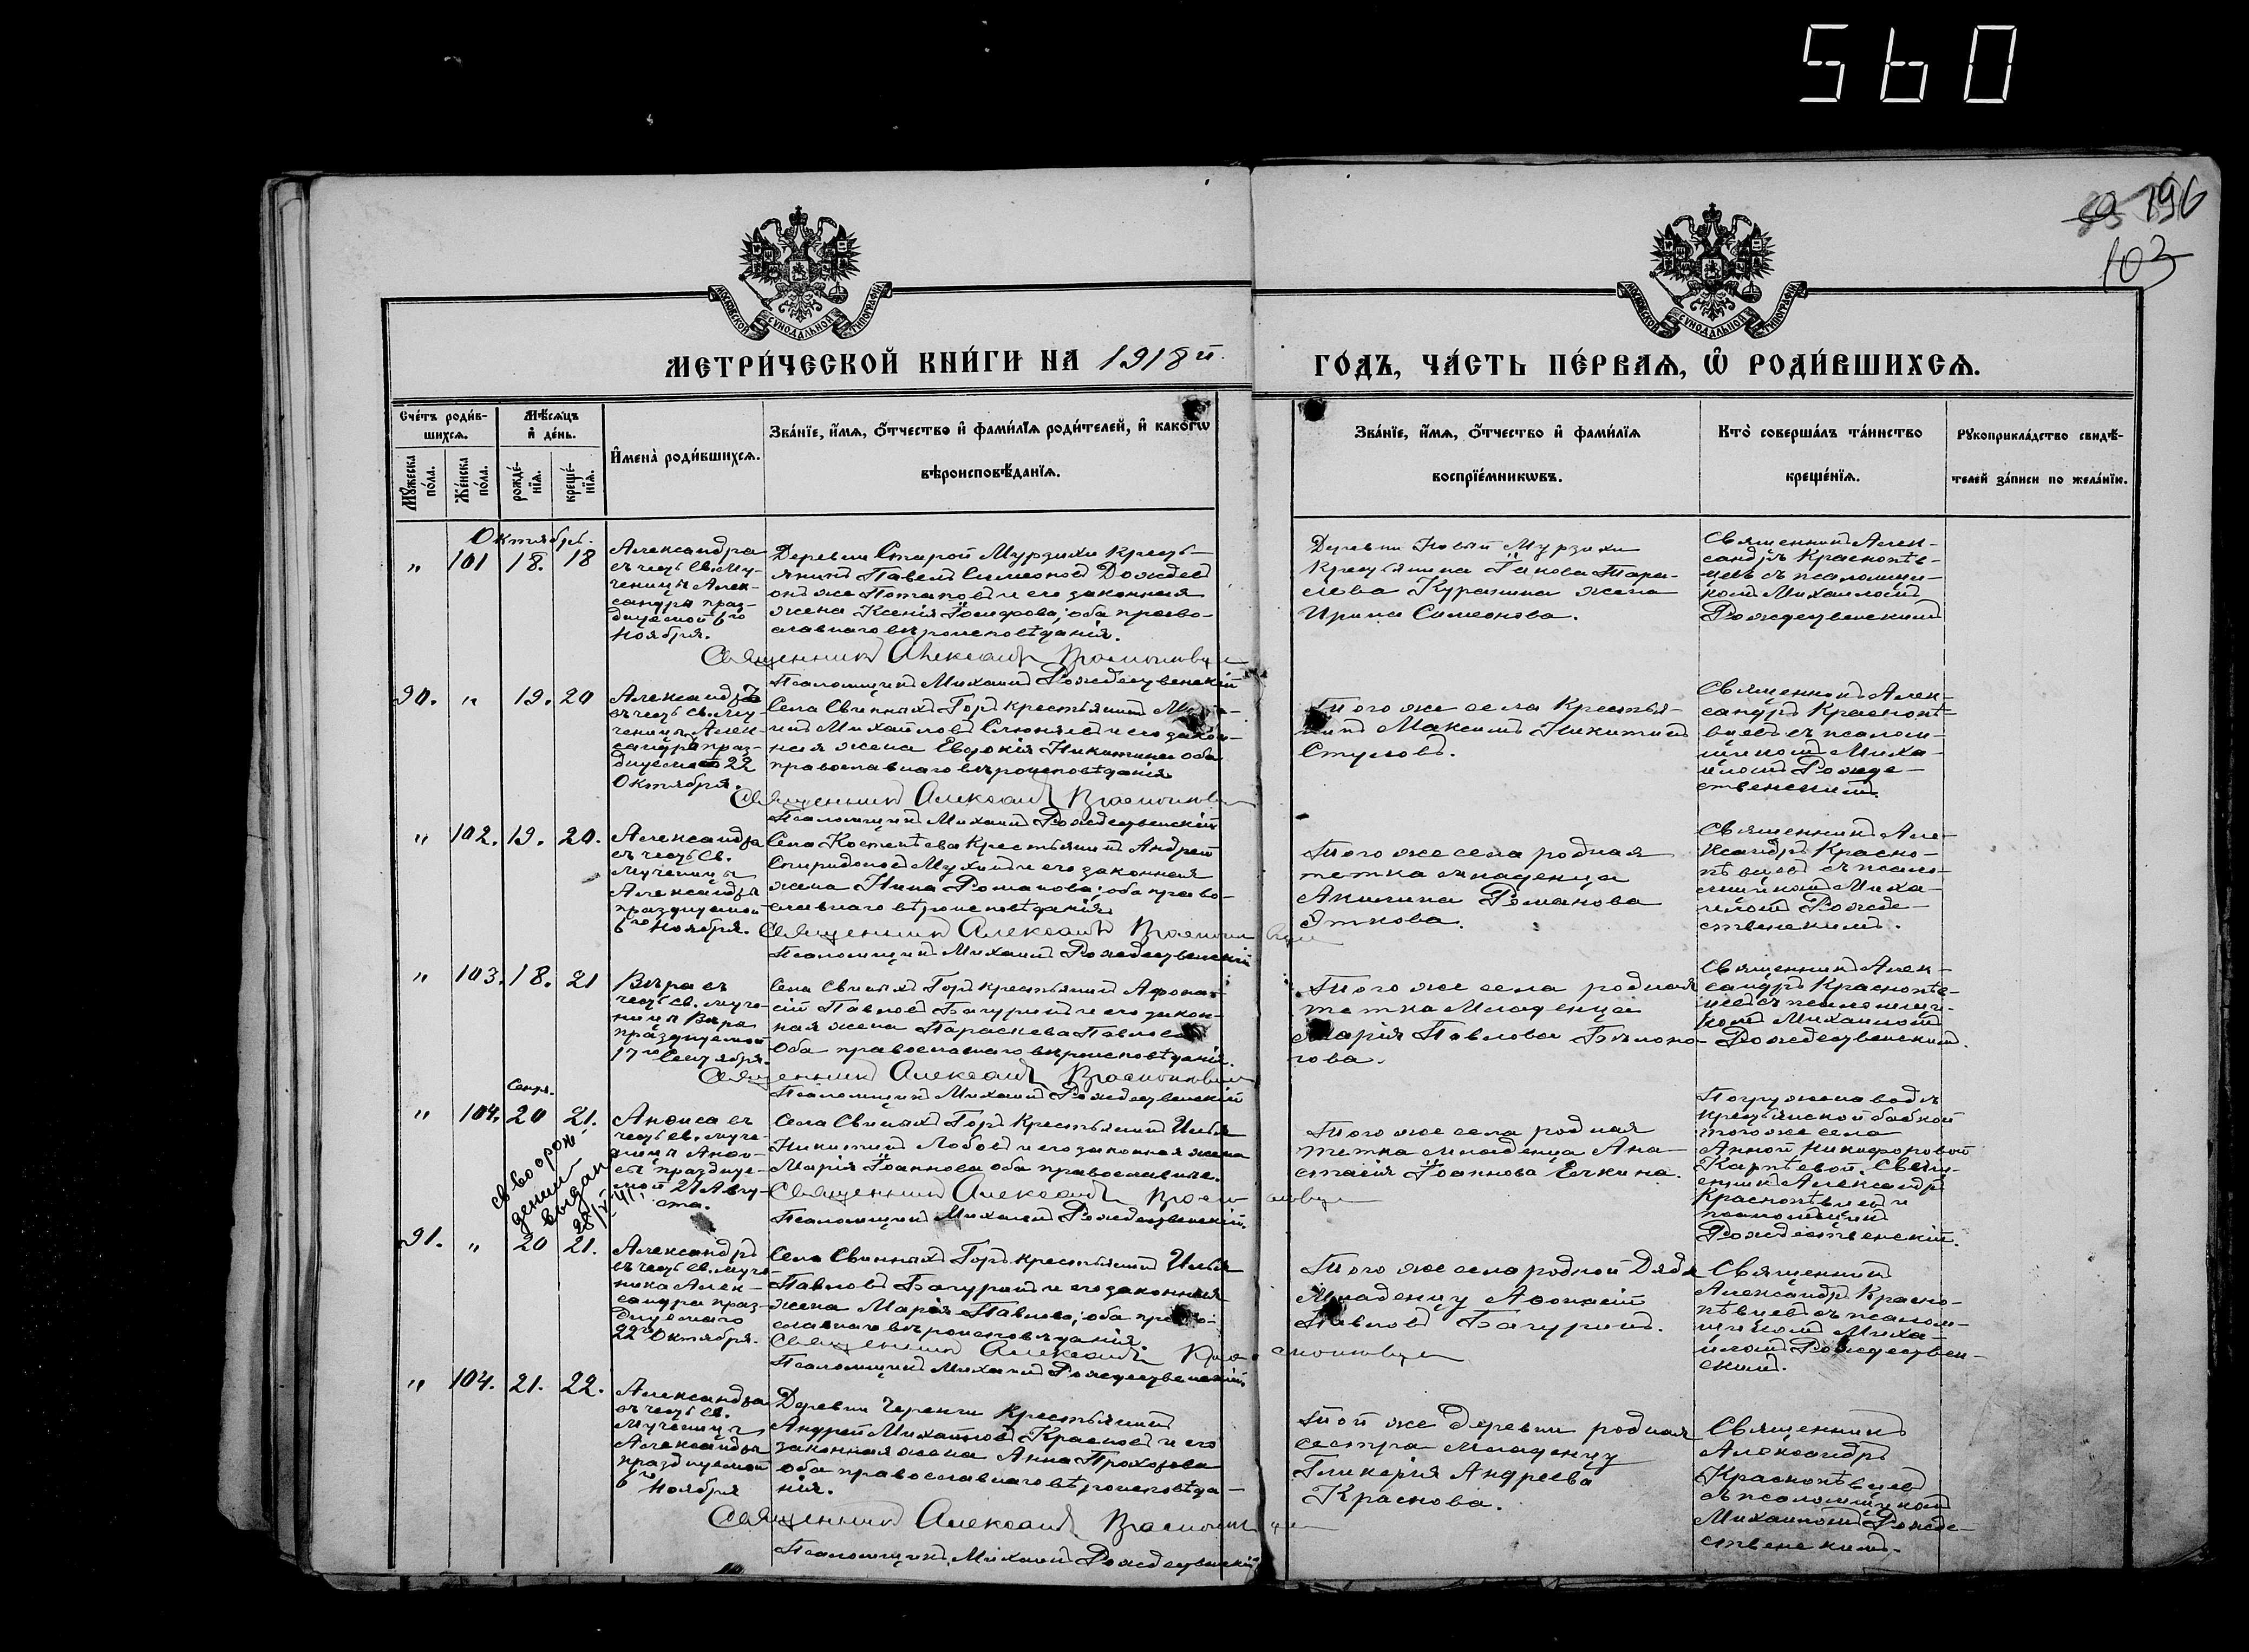 560
89 196
103
МОСКОВСКОЙ СѴНОДАЛЬНОЙ ТИПОГРАФІИ
МОСКОВСКОЙ СѴНОДАЛЬНОЙ ТИПОГРАФІИ
МЕТРИ́ЧЕСКОЙ КНИ́ГИ НА 1918й
ГО́ДЪ, ЧА́СТЬ ПЕ́РВАѦ, Ѡ҆ РОДИ́ВШИХСѦ.
Сче́тъ роди́в-
шихсѧ.
Мѣ́сѧцъ
и҆ де́нь.
Мꙋ́жеска по́ла.
Же́нска по́ла.
рожде́-
нїѧ.
креще́-
нїѧ.
И҆мена̀ роди́вшихсѧ.
Зва́нїе, и҆́мѧ, ѻ҆́тчество и҆ фами́лїѧ роди́телей, и҆ како́гѡ
вѣроисповѣ́данїѧ.
Зва́нїе, и҆́мѧ, ѻ҆́тчество и҆ фами́лїѧ
воспрїе́мникѡвъ.
Кто̀ соверша́лъ та́инство
креще́нїѧ.
Рꙋкоприкла́дство свидѣ́-
телей за́писи по жела́нїю.
Октябрь.
" 101 18. 18
Александра
въ честь Св. Му-
ченицы Алек-
сандры праз-
днуемой 6го
Ноября.
Деревни Старой Мурзихи Кресть-
янинъ Павелъ Симеоновъ Дождев
онъ же Потаповъ и его законная
жена Ксенія Іосифова; оба право-
славнаго вѣроисповѣданія.
Священникъ Александръ Краснопѣвцевъ
Псаломщикъ Михаилъ Рождественскій
Деревни Новый Мурзихи
Крестьянина Іакова Тара-
сіева Куракина жена
Ирина Симеонова.
Священникъ Алек-
сандръ Краснопѣв-
цевъ съ псаломщи-
комъ Михаиломъ
Рождественскимъ
90. " 19. 20
Александръ
въ честь св. Му-
ченицы Алек-
сандра праз-
днуемаго 22
Октября.
Села Свиныхъ Горъ крестьянинъ
Михайловъ и его закон-
ная жена Евдокія Никитина оба
православнаго вѣроисповѣданія
Священникъ Александръ Краснопѣвцевъ
Псаломщикъ Михаилъ Рождественскій
Того же села Крестья-
нинъ Максимъ Никитинъ
Стуловъ.
Священникъ Алек-
сандръ Краснопѣ-
вцевъ съ псалом-
щикомъ Миха-
иломъ Рожде-
ственскимъ.
" 102. 19. 20.
Александра
въ честь Св.
Мученицы
Александры
празднуемой
6го Ноября.
Села Костенѣева Крестьянинъ Андрей
Спиридоновъ Мухинъ и его законная
жена Нина Романова; оба право-
славнаго вѣроисповѣданія.
Священникъ Александръ Краснопѣвцевъ
Псаломщикъ Михаилъ Рождественскій
Того же села родная
тетка младенца
Акилина Романова
Яткова.
Священникъ Але-
ксандръ Красно-
пѣвцевъ съ псало-
мщикомъ Миха-
иломъ Рожде-
ственскимъ.
" 103. 18. 21
Вѣра въ
честь св. муче-
ницы Вѣры
празднуемой
17го Сентября.
Села Свиныхъ Горъ крестьянинъ Афона-
сій Павловъ Багуринъ и его закон-
ная жена Параскева Павлова
Оба православнаго вѣроисповѣданія.
Священникъ Александръ Краснопѣвцевъ
Псаломщикъ Михаилъ Рождественскій
Того же села родная
тетка Младенца
Марія Павлова Бѣлоно-
гова.
Священникъ Алек-
сандръ Краснопѣв-
цевъ съ псаломщи-
комъ Михаиломъ
Рождественскимъ.
Сентр.
" 104. 20 21.
св-во о рож-
дении
выдано
28/V-41г.
Анфиса въ
честь св. муче-
ницы Анфи-
сы праздну-
мой 27 Авгу-
ста.
Села Свиныхъ Горъ Крестьянинъ Илья
Никитинъ Лобовъ и его законная жена
Марія Іоаннова оба православные.
Священникъ Александръ Краснопѣвцевъ
Псаломщикъ Михаилъ Рождественскій.
Того же села родная
тетка младенца Ана-
стасія Іоаннова Ечкина.
Погружена водѣ
крестьянской бабкой
того же села
Анной Никифоровой
Карпѣевой. Свящ-
енникъ Александръ
Краснопѣвцевъ и
псаломщикъ
Рождественскій.
91. " 20 21.
Александръ
въ честь св. муче-
ника Алек-
сандра праз-
днуемаго
22го Октября.
Села Свиныхъ Горъ крестьянинъ Илья
Павловъ Багуринъ и его законная
жена Марія Павлова; оба право-
славнаго вѣроисповѣданія.
Священникъ Александръ Краснопѣвцевъ
Псаломщикъ Михаилъ Рождественскій
Того же села родной Дядя
Младенцу Афонасій
Павловъ Багуринъ.
Священникъ
Александръ Красно-
пѣвцевъ съ псалом-
щикомъ Миха-
иломъ Рождествен-
скимъ.
" 104. 21. 22.
Александра
въ честь св.
Мученицы
Александры
празднуемой
6го Ноября
Деревни Черенги Крестьянинъ
Андрей Михайловъ Красновъ и его
законная жена Анна Прохорова
оба православнаго вѣроисповѣда-
нія.
Священникъ Александръ Краснопѣвцевъ
Псаломщикъ Михаилъ Рождественскій
Той же Деревни родная
сестра младенцу
Гликерія Андреева
Краснова.
Священникъ
Александръ
Краснопѣвцевъ
съ псаломщикомъ
Михаиломъ Рожде-
ственскимъ.